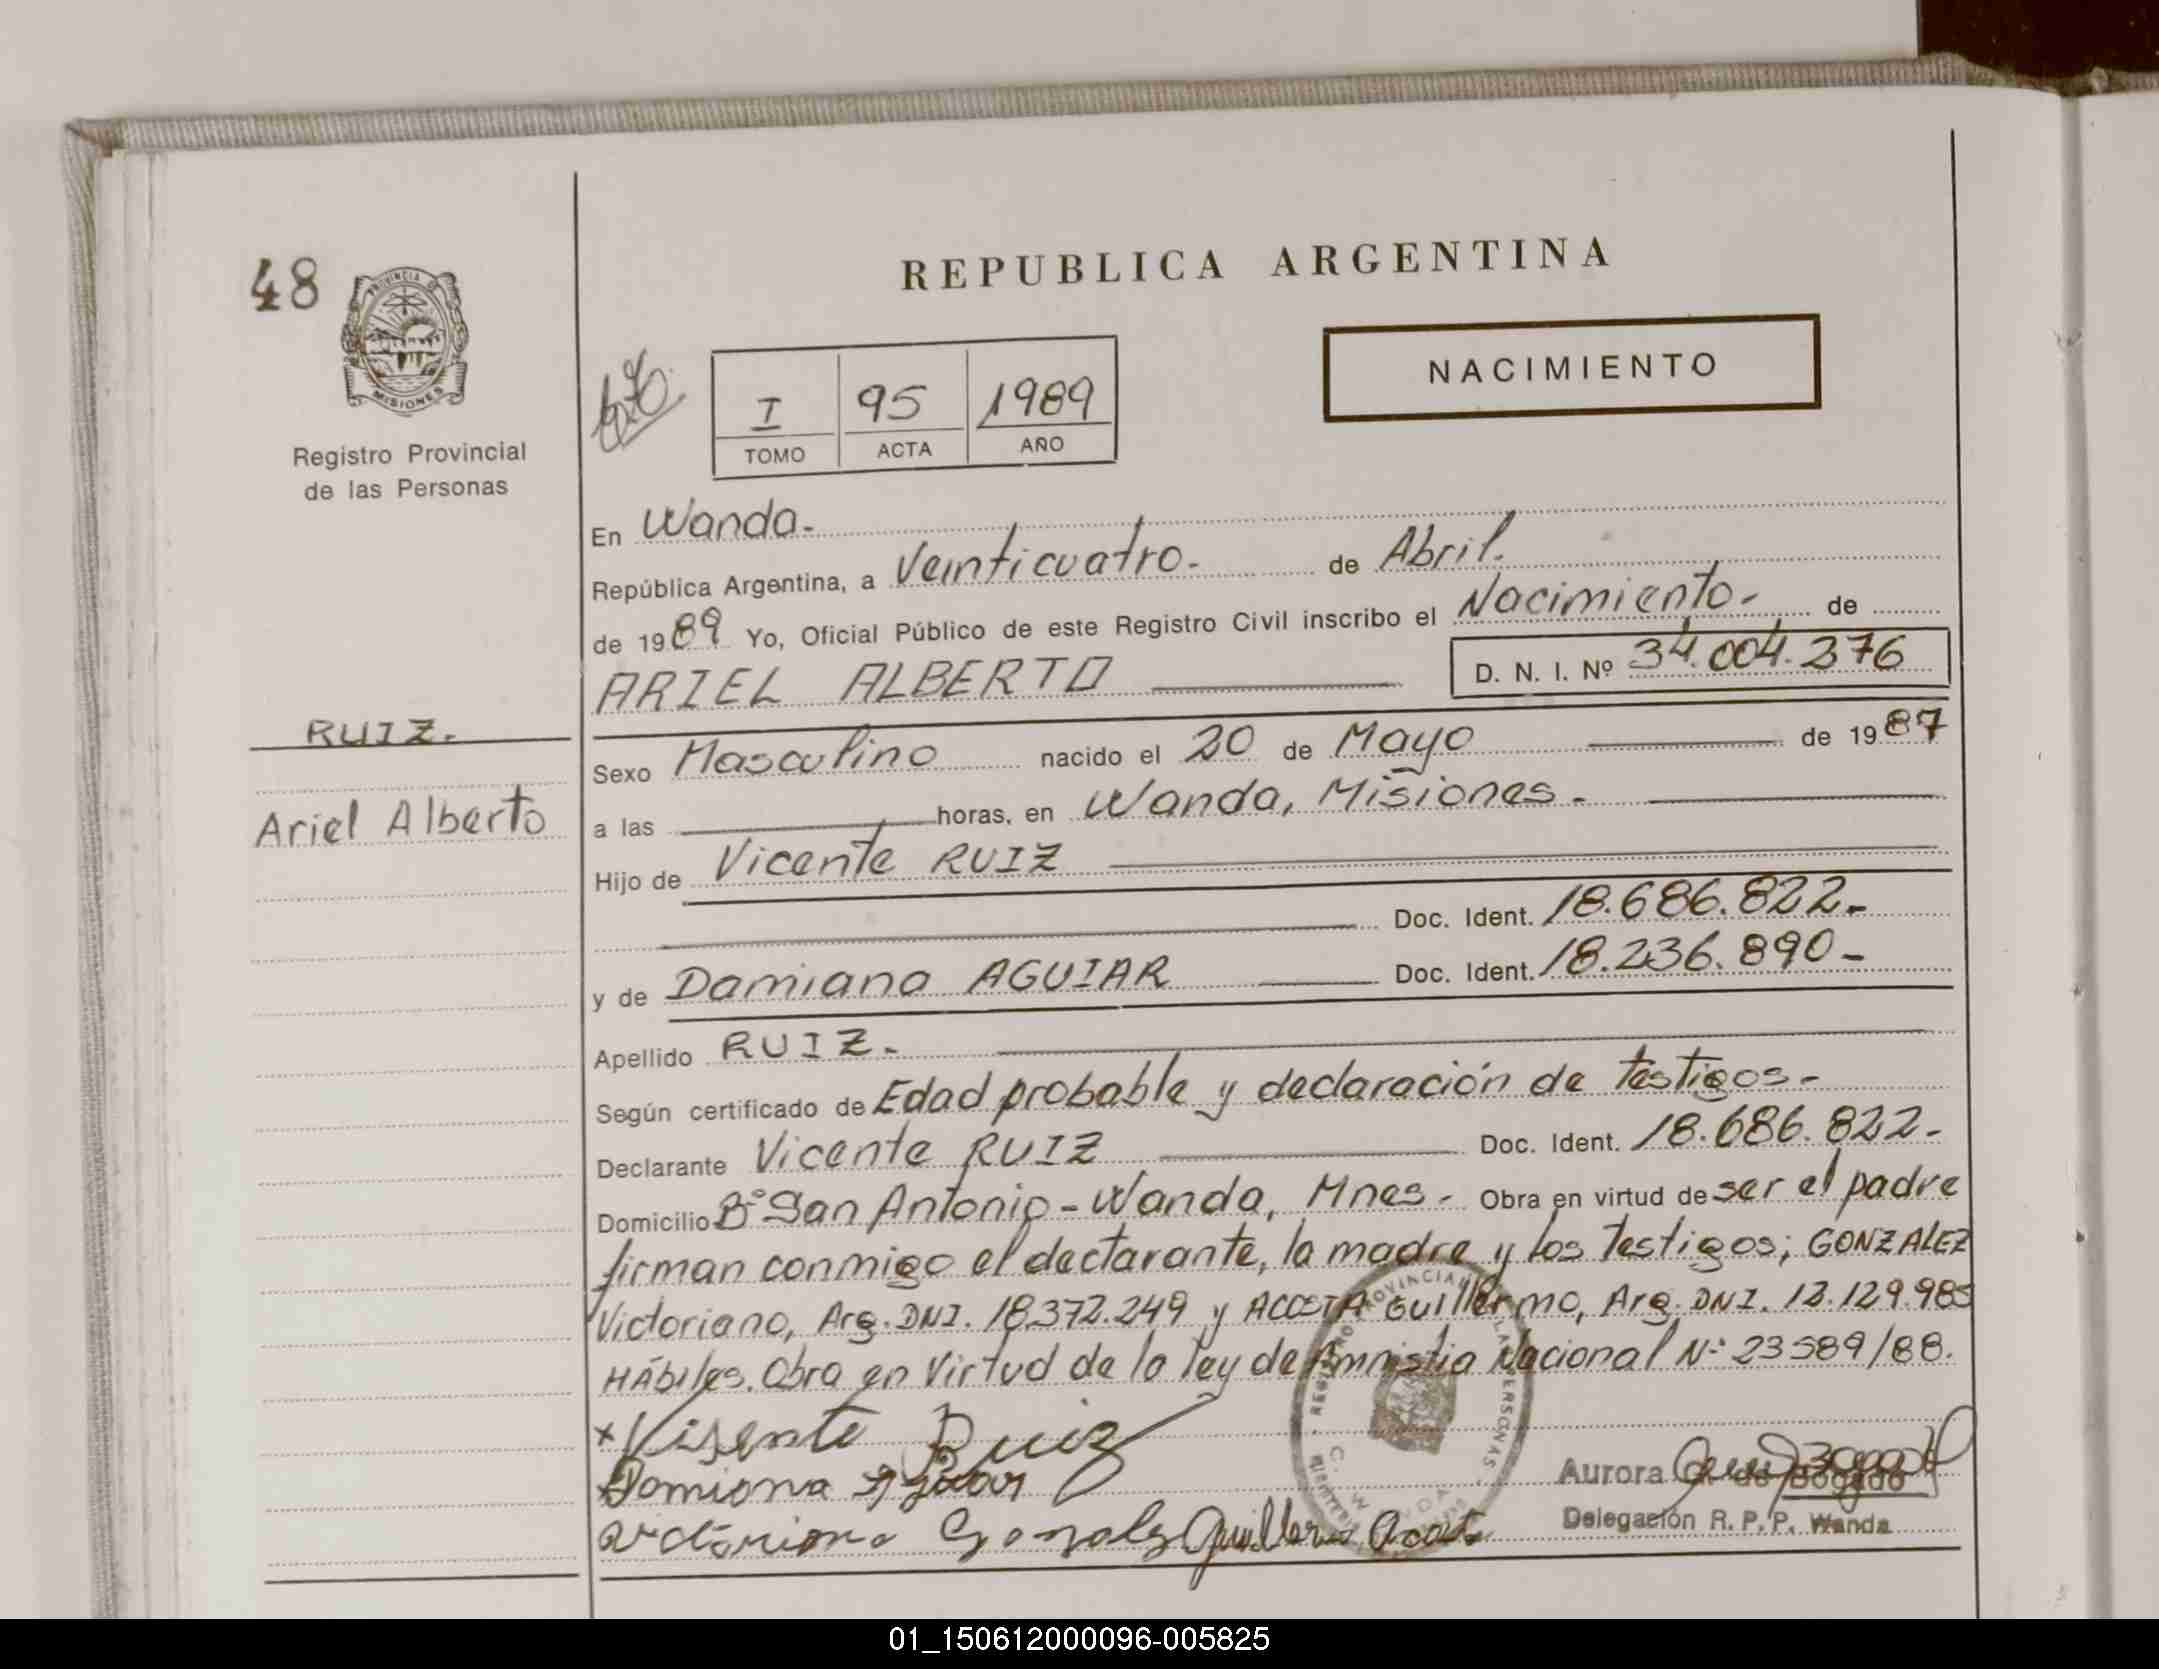 48
PROVINCIA D
MISIONES
Registro Provincial
de las Personas
REPUBLICA ARGENTINA
NACIMIENTO
I 95 1989
TOMO ACTA AÑO
En Wanda.
República Argentina, a Veinticuatro. de Abril.
de 1989 Yo, Oficial Público de este Registro Civil inscribo el Nacimiento. de
ARIEL ALBERTO D. N. I. Nº 34.004.376
RUIZ.
Sexo Masculino nacido el 20 de Mayo de 1987
Ariel Alberto
a las horas, en Wanda, Misiones.
Hijo de Vicente RUIZ
Doc. Ident. 18.686.822.
y de Damiana AGUIAR Doc. Ident. 18.236.890
Apellido RUIZ.
Según certificado de Edad probable y declaración de testigos.
Declarante Vicente RUIZ Doc. Ident. 18.686.822.
Domicilio Bº San Antonio - Wanda, Mnes. Obra en virtud de ser el padre
firman conmigo el declarante, la madre y los testigos; GONZALEZ
Victoriano, Arg. DNI. 18.372.249 y ACOSTA Guillermo, Arg. DNI. 12.129.985
HÁbiles. Obra en Virtud de la ley de Amnistia Nacional Nº 23589/88.
x Visente Ruiz
Aurora de Bogado
Delegación R. P. P. Wanda
01_150612000096-005825